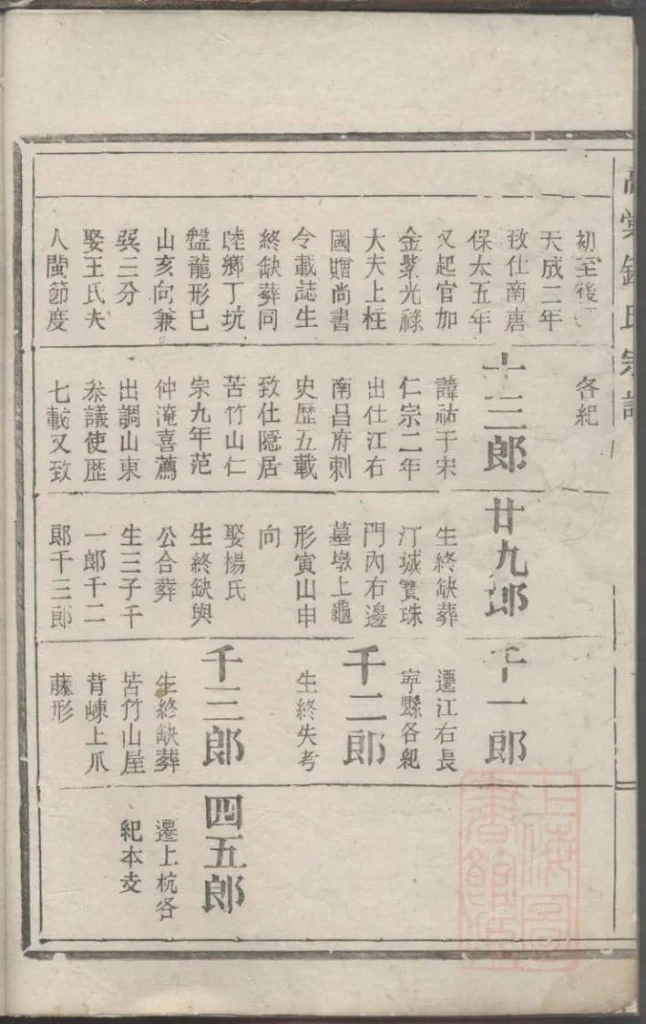 初至後
天成二年
致仕南唐
保太五年
又起官加
金紫光祿
大夫上柱
國贈尚書
令載誌生
終缺葬同
睦鄉丁坑
盤龍形巳
山亥向兼
巽三分
娶王氏夫
人閩節度
各紀
十三郎
諱祐于宋
仁宗二年
出仕江右
南昌府刺
史歷五載
致仕隱居
苦竹山仁
宗九年范
仲淹喜薦
出調山東
叅議使歷
七載又致
廿九郎
生終缺葬
汀城寶珠
門內右邊
墓墩上龜
形寅山申
向
娶楊氏
生終缺與
公合葬
生三子千
一郎千二
郎千三郎
千一郎
遷江右長
寧縣各紀
千二郎
生終失考
千三郎
生終缺葬
苦竹山屋
背崠上爪
藤形
四五郎
遷上杭各
紀本支
氏宗譜
上海圖書館藏